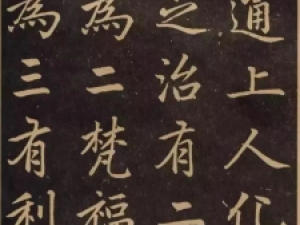 通上人化
之治有二
為二梵福
為三有利